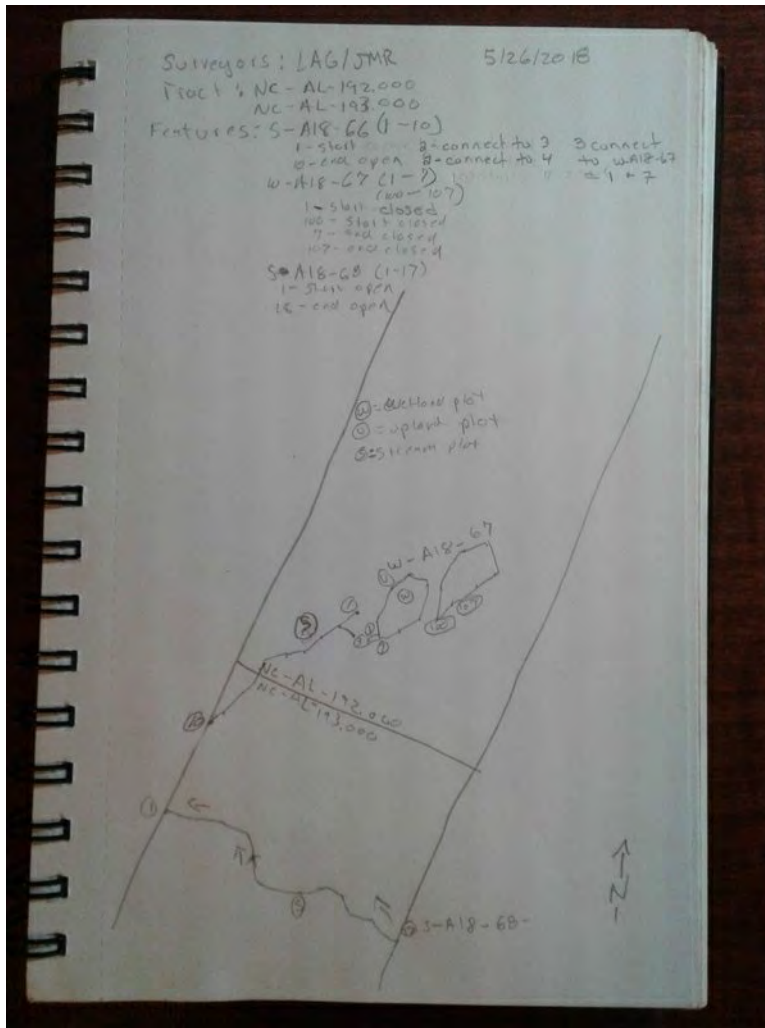 Surveyors: LAG/JMR 5/26/2018
Tract: NC-AL-192.000
NC-AL-193.000
Features: S-A18-66 (1-10)
1-start 2-connect to 3 3 connect
10-end open 2-connect to 4 to W-A18-67
W-A18-67 (1-7) 1 & 7
(100-107)
1-start closed
100-start closed
7-end closed
107-end closed
S-A18-68 (1-17)
1-start open
18-end open
W=wetland plot
U=upland plot
S=stream plot
W-A18-67
U
W
1
S
100
107
NC-AL-192.000
NC-AL-193.000
10
1
S
S-A18-68-
N